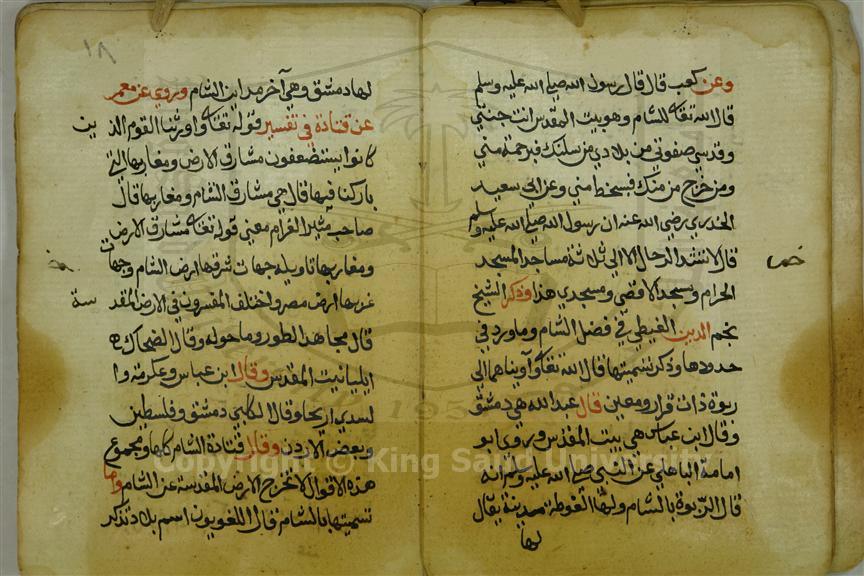 وعن كعب قال قال رسول الله صلى الله عليه وسلم
قال الله تعالى للشام وهو بيت المقدس انت جنتي
وقدسي وصفوتي من بلادي من سكنك فبرحمة مني
ومن خرج من منك فبسخط مني وعن ابي سعيد
الخدري رضي الله عنه ان رسول الله صلى الله عليه وسلم
قال لا تشد الرحال الا الى ثلاثة مساجد المسجد
الحرام ومسجد الاقصى ومسجدي هذا وذكر الشيخ
نجم الدين الغيطي في فضل الشام وما ورد في
حدودها وذكر تسميتها قال الله تعالى وآويناهما الى
ربوة ذات قرار ومعين قال عبد الله هي دمشق
وقال ابن عباس هي بيت المقدس وروى ابو
امامة الباهلي عن النبي صلى الله عليه وسلم انه
قال الربوة بالشام ولها الغوطة مدينة يقال
لها
١٨
لها دمشق وهي آخر مداين الشام وروي عن معمر
عن قتادة في تفسير قوله تعالى واورثنا القوم الذين
كانوا يستضعفون مشارق الارض ومغاربها التي
باركنا فيها قال هي مشارق الشام ومغاربها قال
صاحب مثير الغرام معنى قوله تعالى مشارق الارض
ومغاربها تاويله جهات شرقها ارض الشام وجهات
غربها ارض مصر واختلف المفسرون في الارض المقدسة
قال مجاهد الطور وما حوله وقال الضحاك هي
ايليا بيت المقدس وقال ابن عباس وعكرمة وا
لسدي اريحا وقال الكلبي دمشق وفلسطين
وبعض الاردن وقال قتادة الشام كلها ومجموع
هذه الاقوال لا تخرج الارض المقدسة عن الشام واما
تسميتها بالشام قال اللغويون اسم بلاد تذكر
Copyright © King Saud University